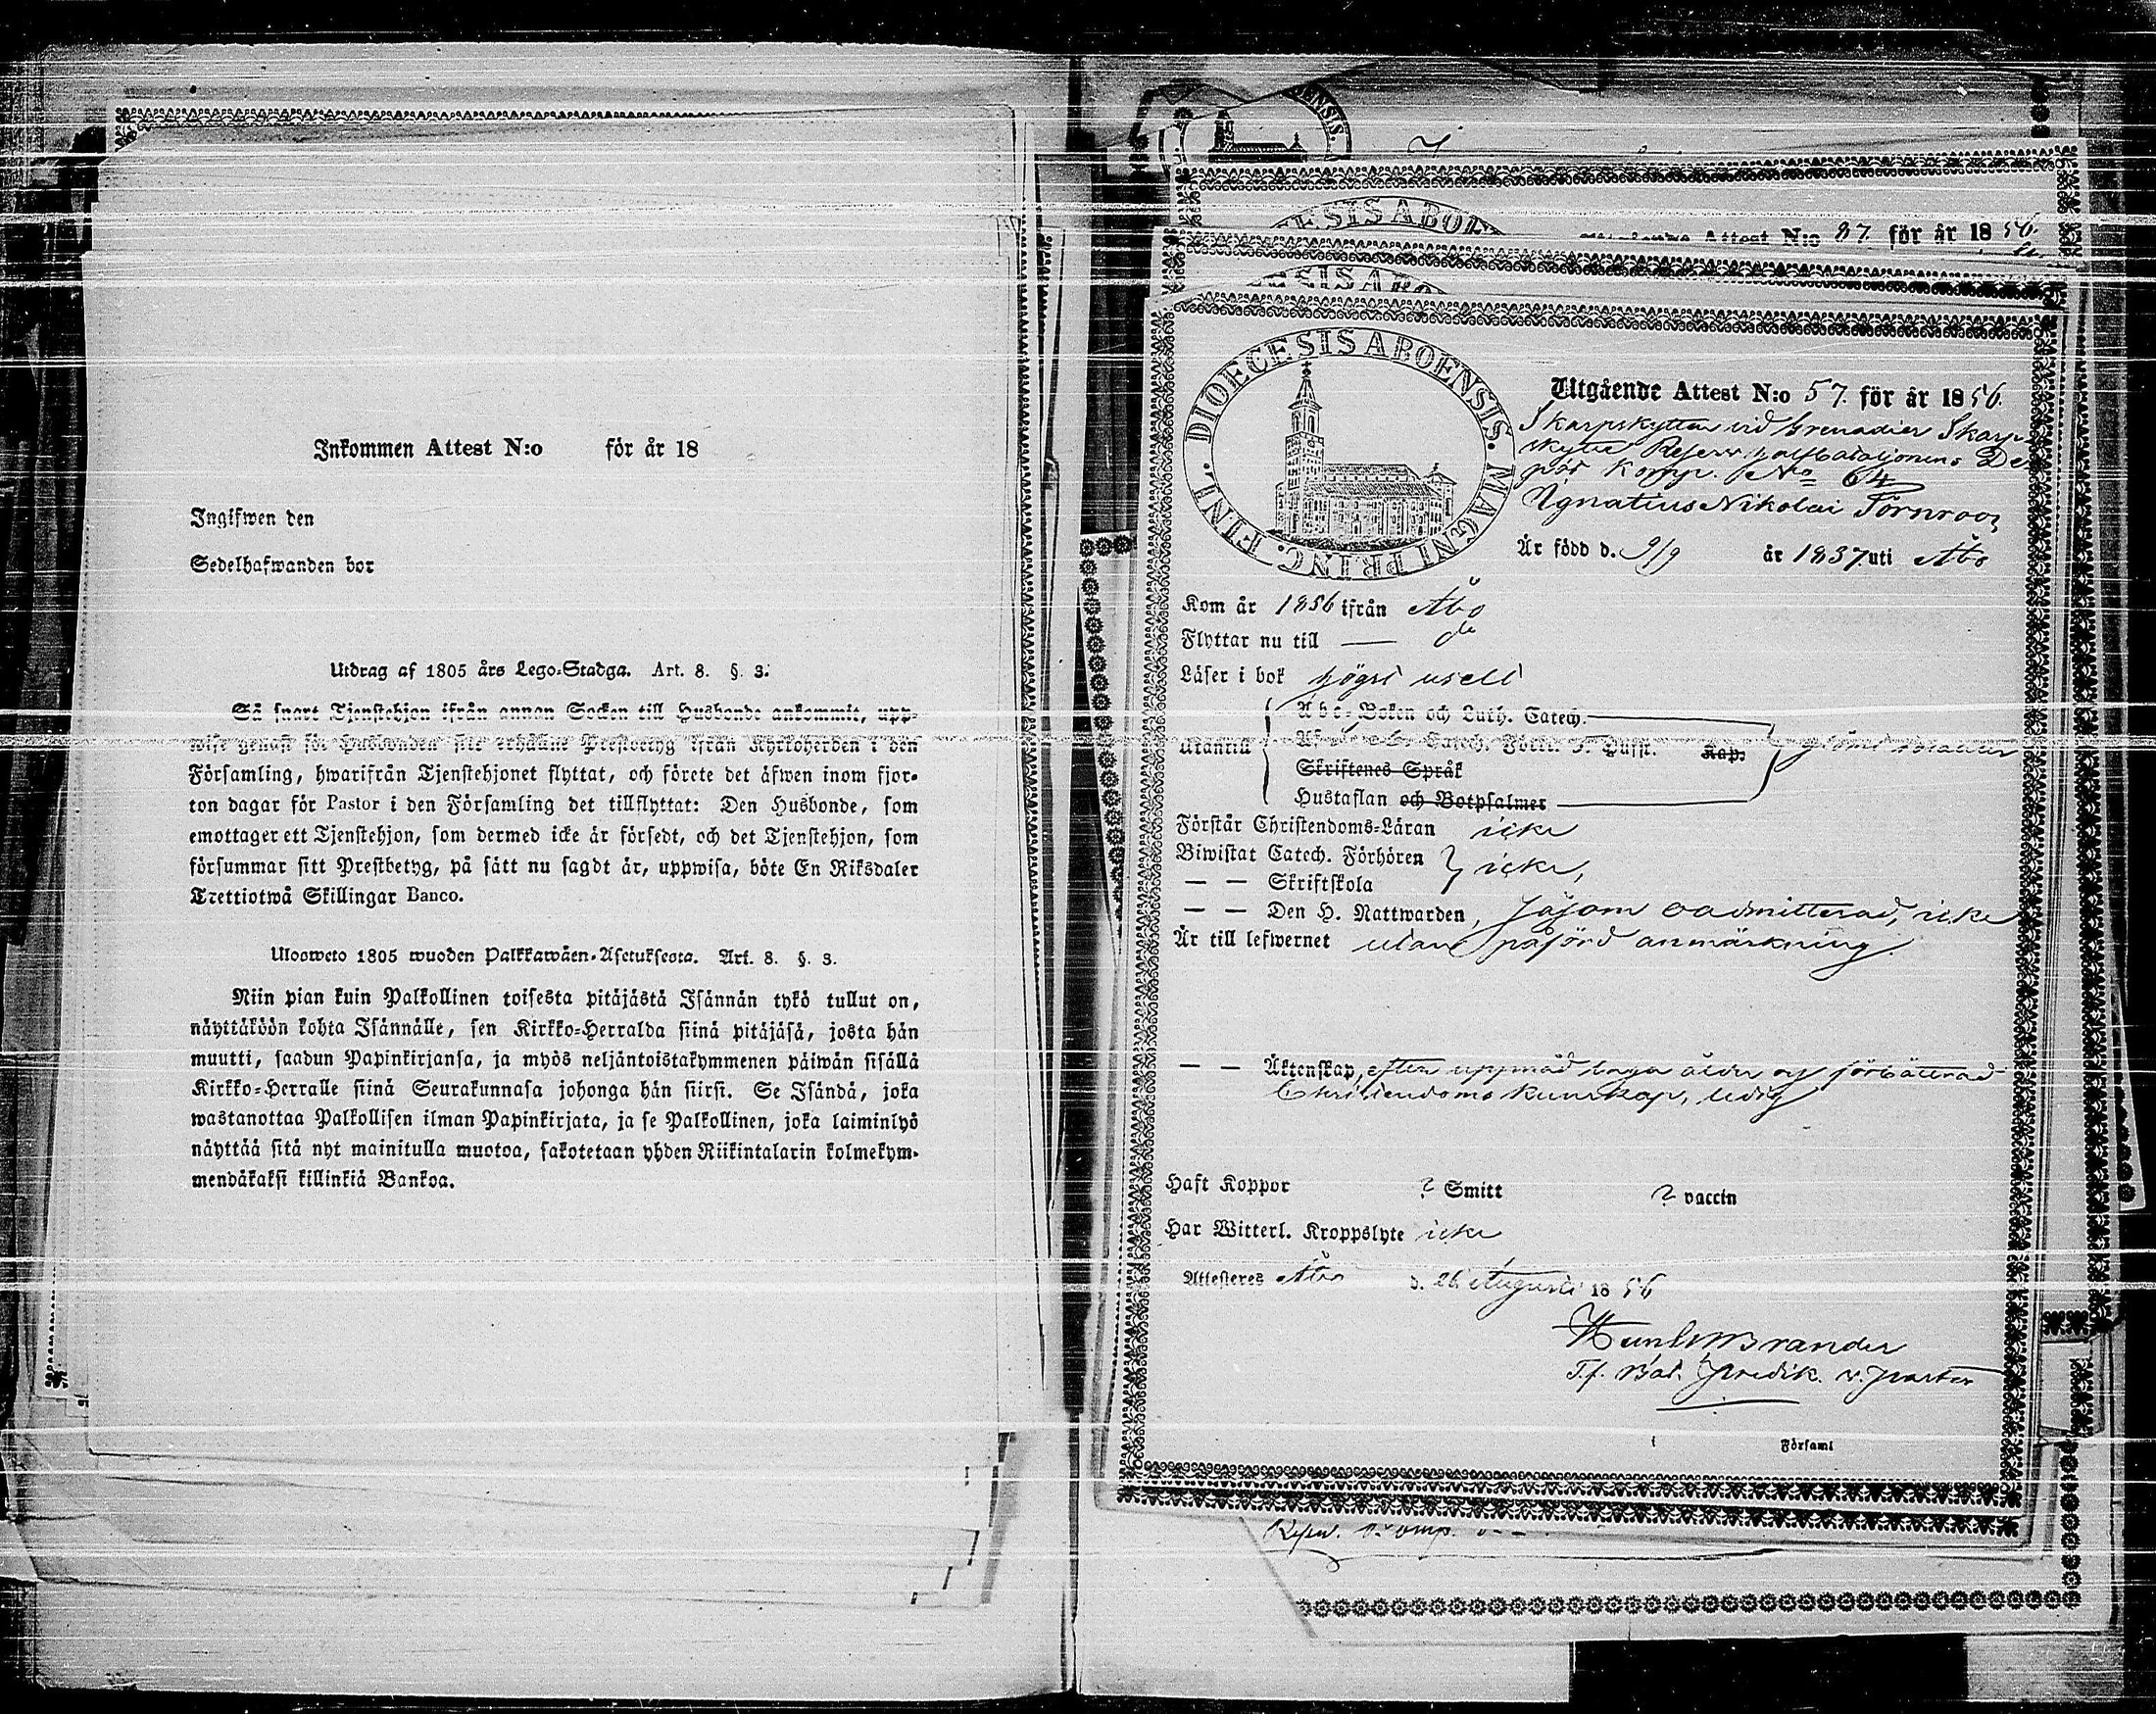 Inkommen Attest N:o för år 18
Ingifwen den
Sedelhafwanden bor
Utdrag af 1805 års Lego-Stadga. Art. 8. §. 3.
Så snart Tjenstehjon ifrån annan Socken till Husbonde ankommit, upp-
wise genast för Husbonden sitt erhållne Prestbetyg ifrån Kyrkoherden i den
Församling, hwarifrån Tjenstehjonet flyttat, och förete det äfwen inom fjor-
ton dagar för Pastor i den Församling det tillflyttat: Den Husbonde, som
emottager ett Tjenstehjon, som dermed icke är försedt, och det Tjenstehjon, som
försummar sitt Prestbetyg, på sätt nu sagdt är, uppwisa, böte En Riksdaler
Trettiotwå Skillingar Banco.
Uloosweto 1805 wuoden Palkkawäen-Asetuksesta. Art. 8. §. 3.
Niin pian kuin Palkollinen toisesta pitäjästä Isännän tykö tullut on,
näyttäköön kohta Isännälle, sen Kirkko-Herralda siinä pitäjäsä, josta hän
muutti, saadun Papinkirjansa, ja myös neljäntoistakymmenen päiwän sisällä
Kirkko-Herralle siinä Seurakunnasa johonga hän siirsi. Se Isändä, joka
wastanottaa Palkollisen ilman Papinkirjata, ja se Palkollinen, joka laiminlyö
näyttää sitä nyt mainitulla muotoa, sakotetaan yhden Riikintalarin kolmekym-
mendäkaksi killinkiä Bankoa.
ENSIS.
ESIS ABOE
Attest N:o 87. för år 1856.
ESIS ABO
DIOECESIS ABOENSIS. MAGNI PRINC. FINL.
Utgående Attest N:o 57. för år 1856.
Skarpskytten vid Grenadier Skarp-
skytte Reserv halfbataljonens De
pot Komp. No 64
Ignatius Nikolai Törnroos
Är född d. 9/9 år 1837 uti Åbo
Kom år 1856 ifrån Åbo
Flyttar nu till — do
Läser i bok högst uselt
Utantill
Abc-Boken och Luth. Catech.
Catech. Kap.
Skriftenes Språk
Hustaflan och Botpsalmer
Förstår Christendoms-Läran icke
Biwistat Catech. Förhören } icke,
— — Skriftskola
— — Den H. Nattwarden, såsom oadmitterad, icke
Är till lefwernet utan påförd anmärkning.
— — Äktenskap, efter uppnåd laga ålder och förbättrad
Christendoms kunskap, ledig
Haft Koppor ? Smitt ? vaccin
Har Witterl. Kroppslyte icke
Attesteres Åbo d. 26 Augusti 1856
Brander
T.f. Bat. Predik. v. Pastor
i Församl
Reserv. Komp.